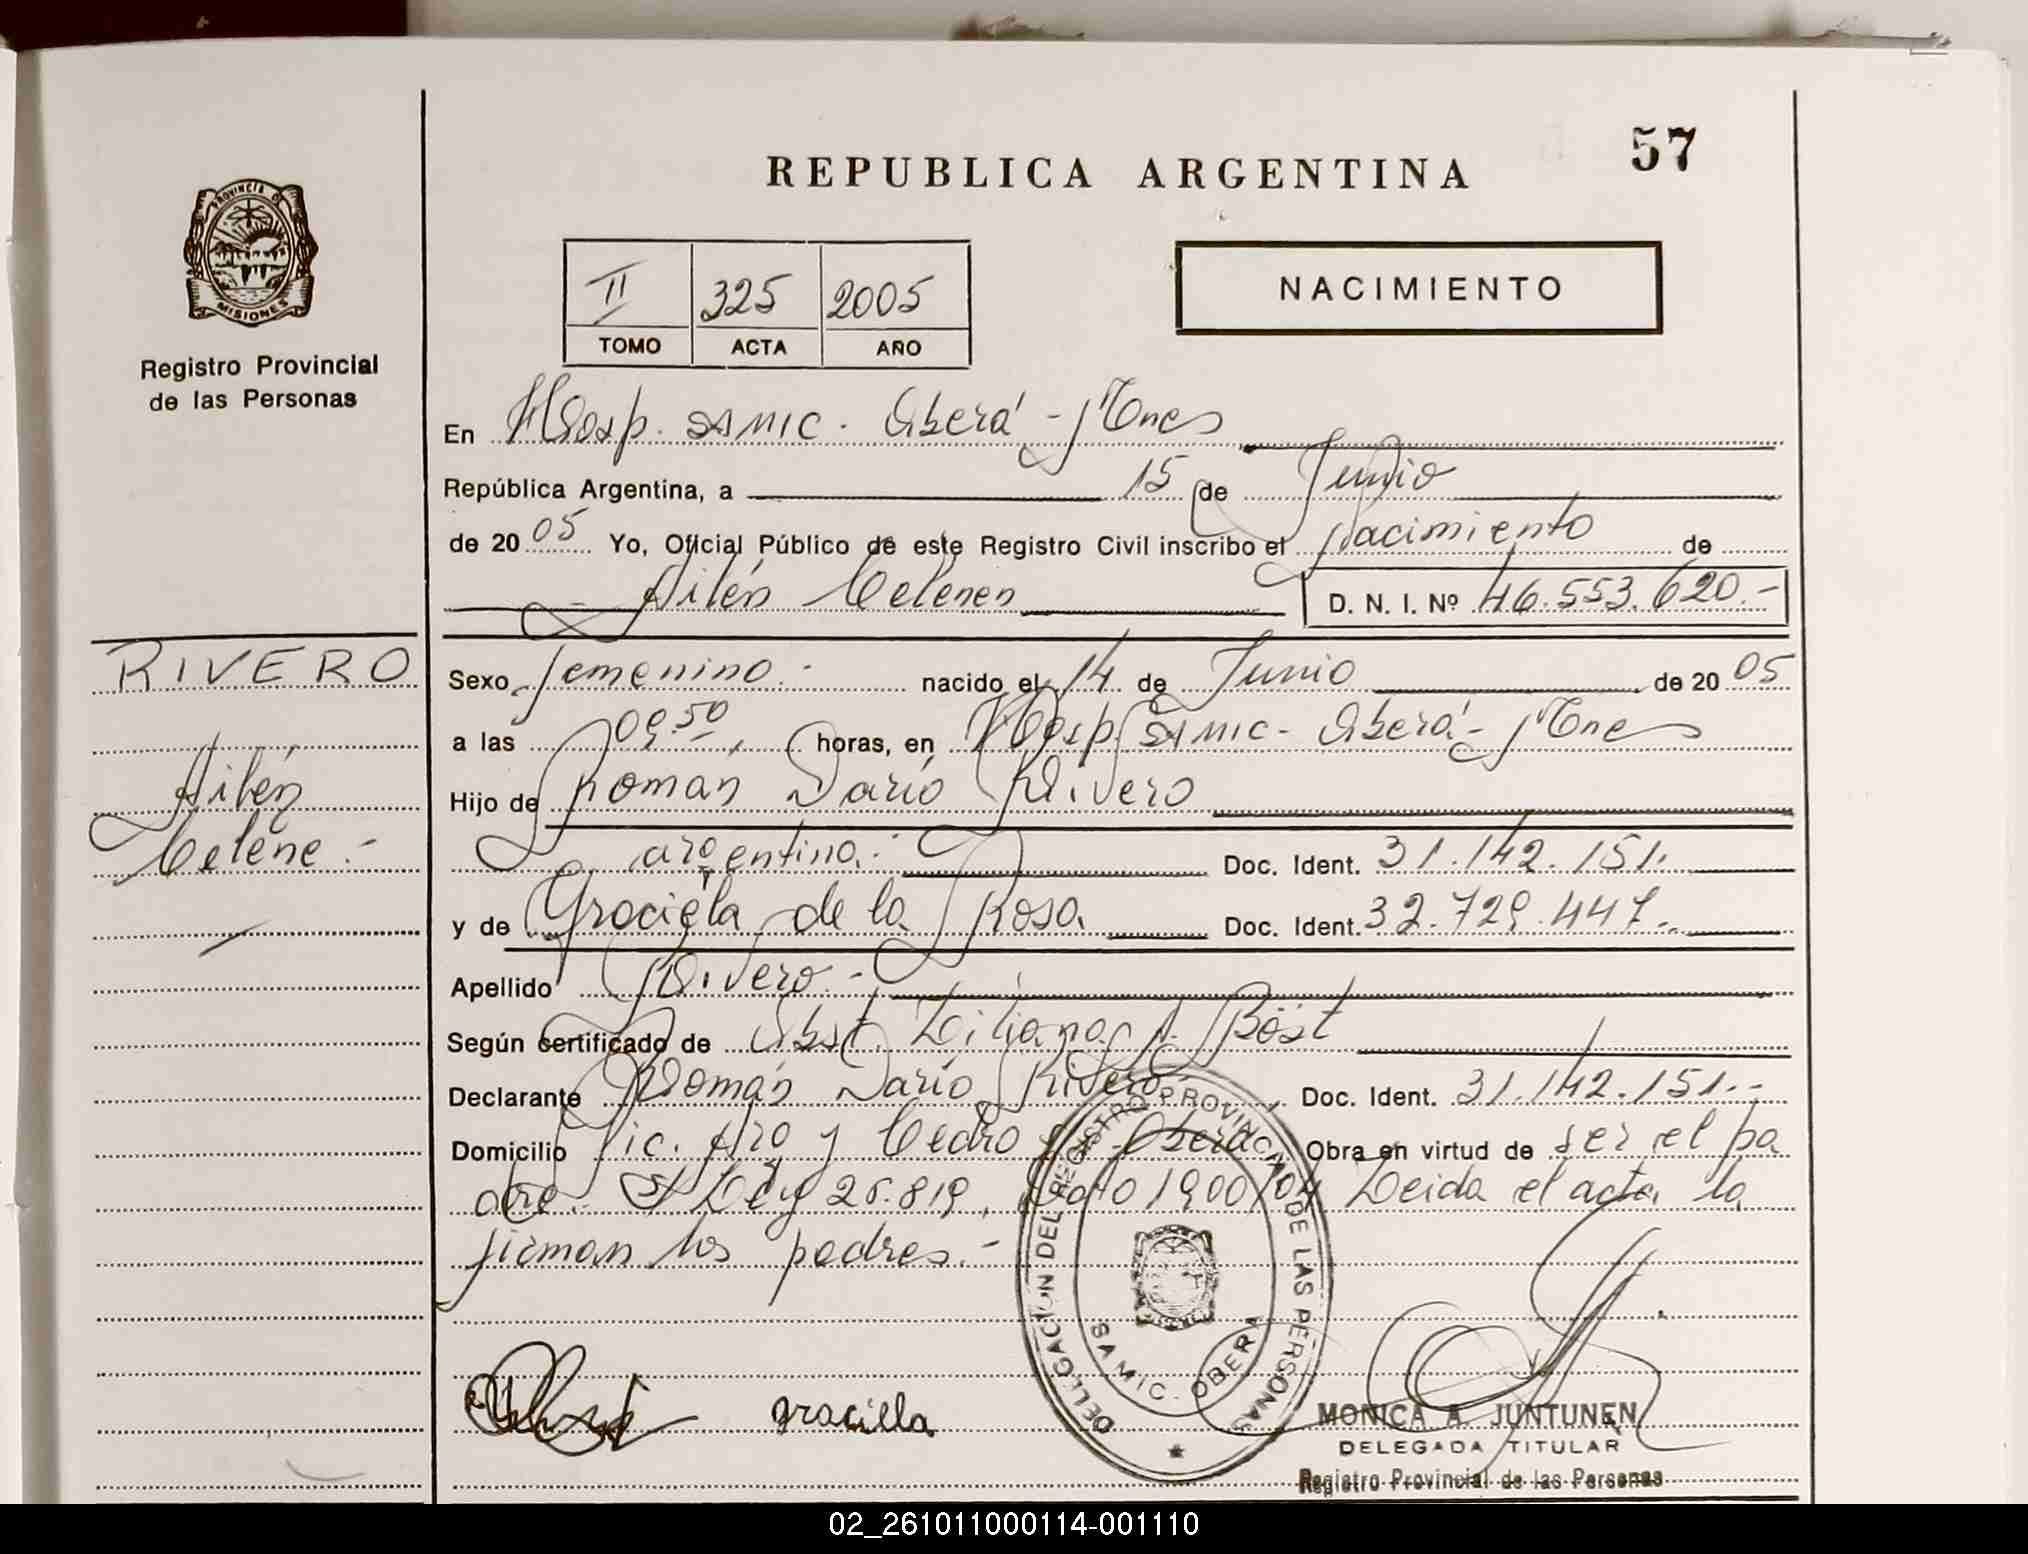 57
REPUBLICA ARGENTINA
PROVINCIA D MISIONES
Registro Provincial
de las Personas
II 325 2005
TOMO ACTA AÑO
NACIMIENTO
En Hosp. SAMIC. Oberá - Mnes
República Argentina, a 15 de Junio
de 20 05 Yo, Oficial Público de este Registro Civil inscribo el Nacimiento de
Ailén Celenen
D. N. I. Nº 46.553.620.-
RIVERO
Ailén
Celene.-
Sexo femenino.- nacido el 14 de Junio de 20 05
a las 09.50 horas, en Hosp. SAMIC - Oberá - Mnes
Hijo de Román Darío Rivero
argentino.- Doc. Ident. 31.142.151.
y de Graciela de la Rosa Doc. Ident. 32.729.447.-
Apellido Rivero.-
Según certificado de Obst. Liliana A. Böst
Declarante Román Darío Rivero Doc. Ident. 31.142.151.-
Domicilio Lic. Aro y Cedro Oberá Obra en virtud de ser el pa
dre. S/ Ley 25.819, Dcto 1900/04 Leida el acta la
firman los padres.-
DELEGACION DEL REGISTRO PROVINCIAL DE LAS PERSONAS
SAMIC - OBERA
graciela
MONICA A. JUNTUNEN
DELEGADA TITULAR
Registro Provincial de las Personas
02_261011000114-001110